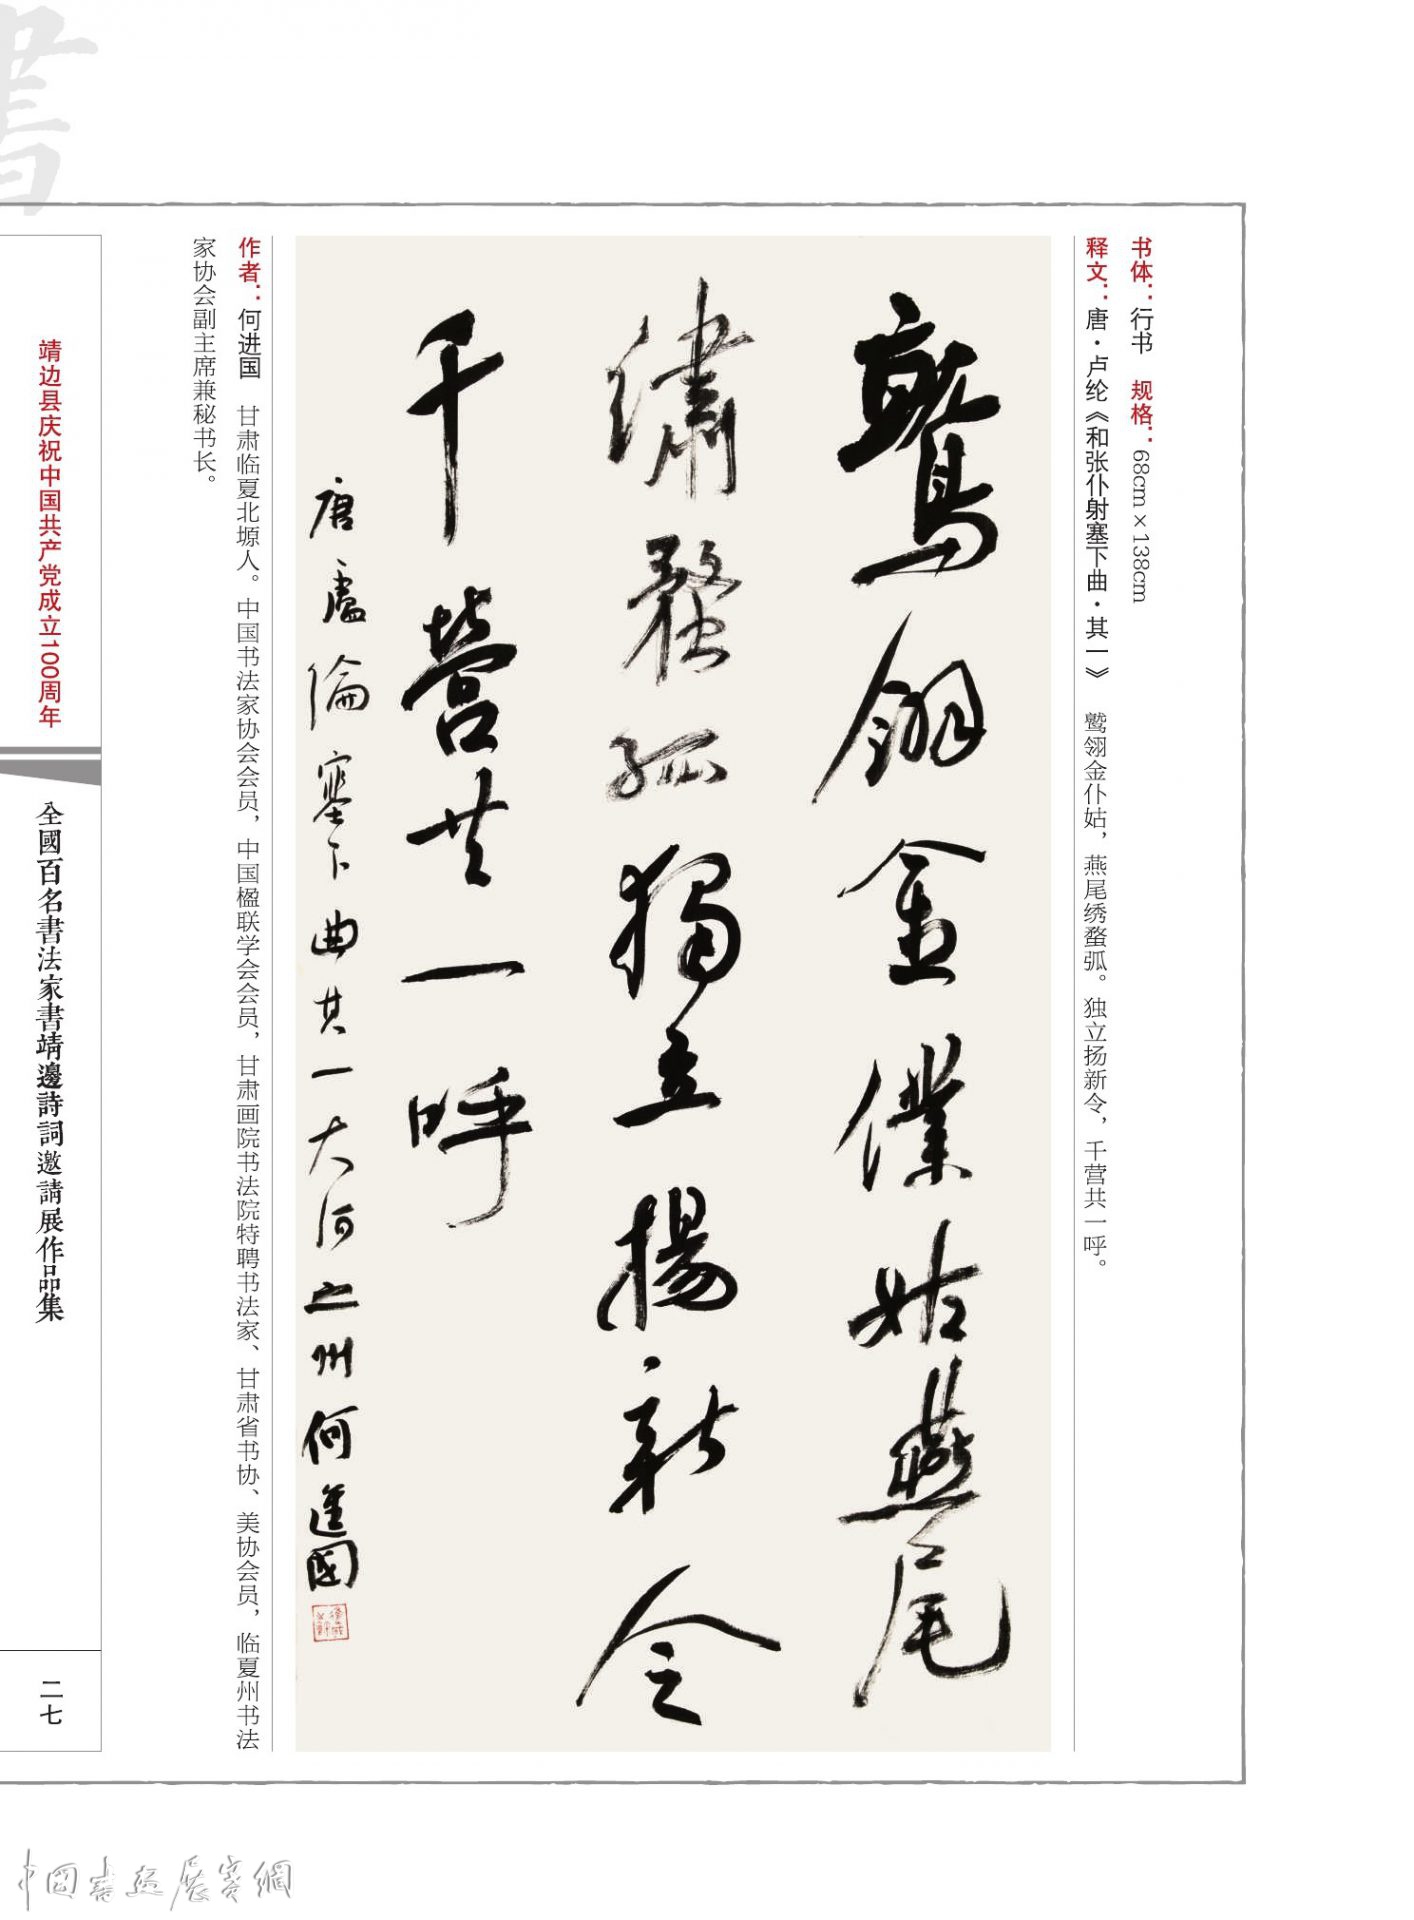 书体：行书　规格：68cm×138cm
释文：唐·卢纶《和张仆射塞下曲·其一》　鹫翎金仆姑，燕尾绣蝥弧。独立扬新令，千营共一呼。
鹫翎金僕姑燕尾
繡蝥弧獨立揚新令
千營共一呼
唐盧倫塞下曲其一大河之州何進國
作者：何进国　甘肃临夏北塬人。中国书法家协会会员，中国楹联学会会员，甘肃画院书法院特聘书法家、甘肃省书协、美协会员，临夏州书法
家协会副主席兼秘书长。
書
靖边县庆祝中国共产党成立100周年
全國百名書法家書靖邊詩詞邀請展作品集
二七
中國書画展賽網